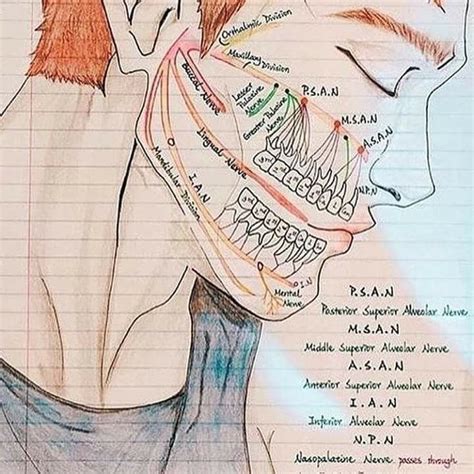 Opthalmic Division
Maxillary Division
Buccal Nerve
Lesser
Palatine
Nerve
Greater Palatine
Nerve
P.S.A.N
M.S.A.N
A.S.A.N
Lingual Nerve
Mandibular Division
I.A.N
N.P.N
I.N
Mental
Nerve
P.S.A.N
Posterior Superior Alveolar Nerve
M.S.A.N
Middle Superior Alveolar Nerve
A.S.A.N
Anterior Superior Alveolar Nerve
I.A.N
Inferior Alveolar Nerve
N.P.N
Nasopalatine Nerve passes through